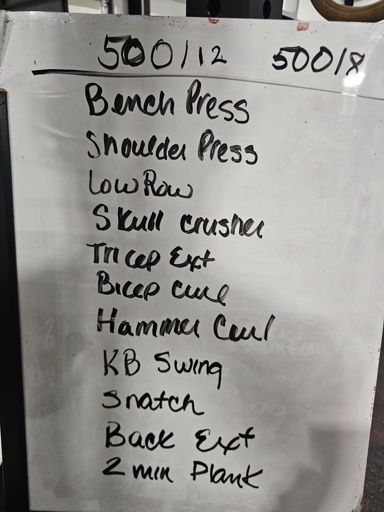 500/12 500/8
Bench Press
Shoulder Press
Low Row
Skull crusher
Tricep Ext
Bicep curl
Hammer Curl
KB Swing
Snatch
Back Ext
2 min Plank